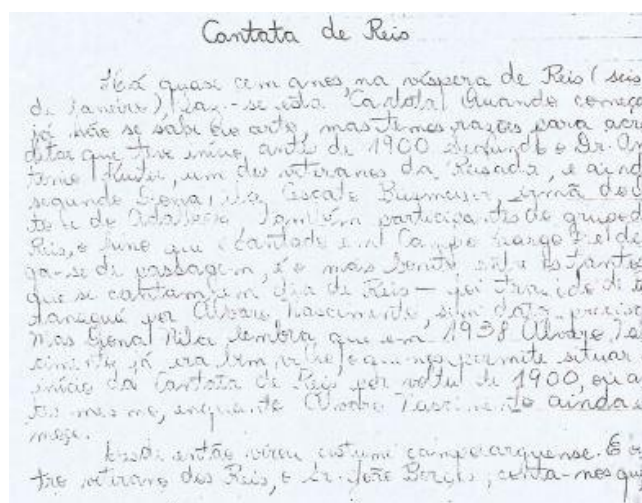 Cantata de Reis
Há quase cem anos, na véspera de Reis (seis
de Janeiro), faz-se esta Cantata. Quando começ
já não se sabe ao certo, mas temos razões para acre
ditar que teve início antes de 1900. Segundo o Dr. An
tonio, um dos veteranos da Reisada, e aind
segundo Dona irmã do
e de também participantes do grupo
Reis, o hino que é cantado em Campo Largo e, di
ga-se de passagem, é o mais bonito entre os tantos
que se cantam em dia de Reis — foi trazido de
por Alvaro Nascimento, sem data precisa
Mas Dona lembra que em 1938 Alvaro
cimento já era bem velho, o que nos permite situar
início da Cantata de Reis por volta de 1900, ou a
tes mesmo, enquanto Alvaro Nascimento ainda e
moço.
Desde então virou costume campolarguense. E o
tro veterano dos Reis, o Sr. João Borges, conta-nos que